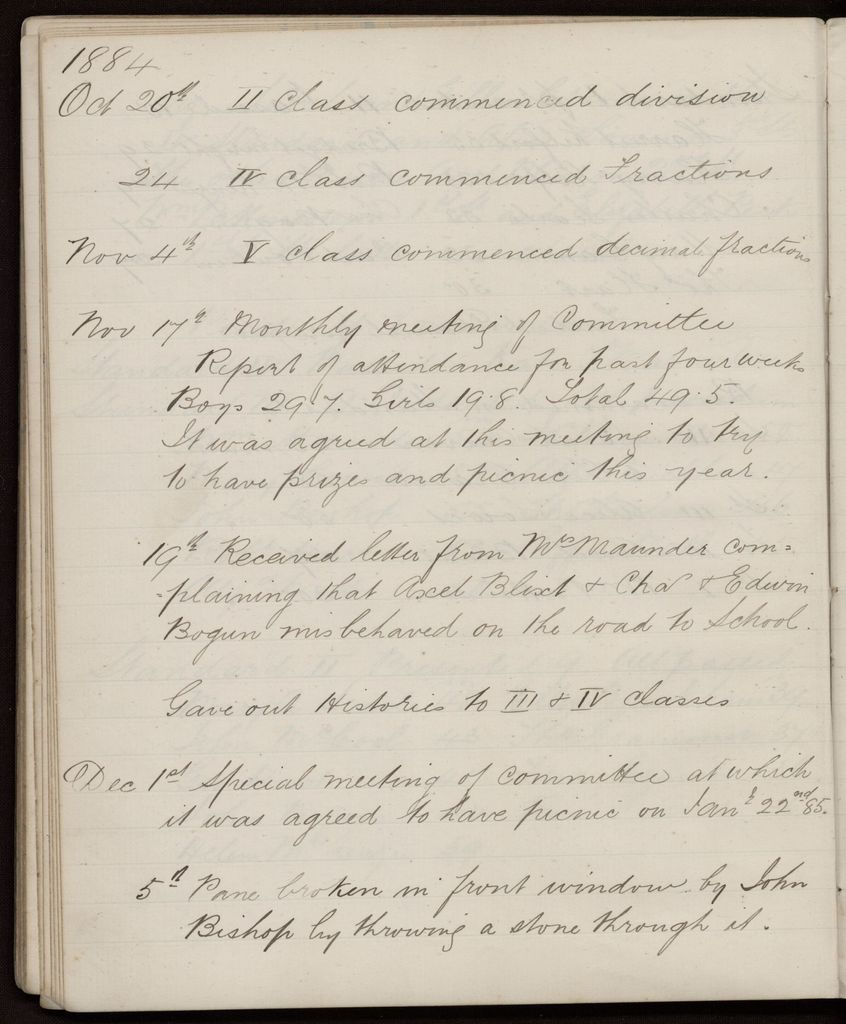 1884
Oct 20th II Class commenced division
24 IV Class commenced Fractions
Nov 4th V Class commenced decimal fractions
Nov 17th Monthly meeting of Committee
Report of attendance for past four weeks
Boys 29.7. Girls 19.8. Total 49.5.
It was agreed at this meeting to try
to have prizes and picnic this year.
19th Received letter from Mrs Maunder com=
=plaining that Axel Blixt & Chas & Edwin
Bogun misbehaved on the road to School.
Gave out Histories to III & IV Classes
Dec 1st Special meeting of committee at which
it was agreed to have picnic on Jany 22nd 85.
5th Pane broken in front window by John
Bishop by throwing a stone through it.